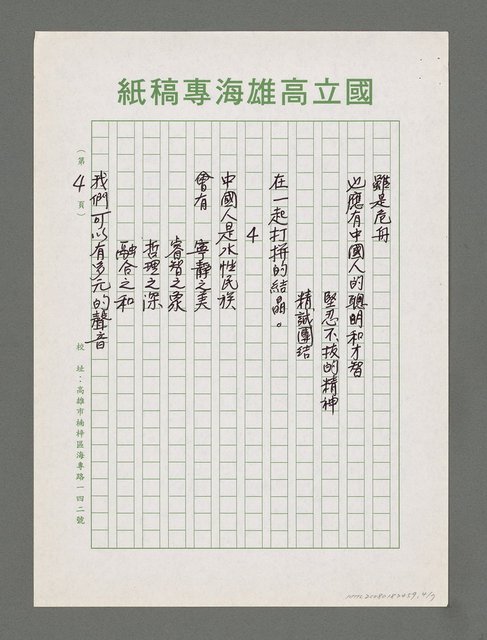 國立高雄海專稿紙
雖是危舟
也應有中國人的聰明和才智
堅忍不拔的精神
精誠團結
在一起打拼的結晶。
4
中國人是水性民族
曾有 寧靜之美
睿智之象
哲理之深
融合之和
我們可以有多元的聲音
(第4頁)
校址:高雄市楠梓區海專路一四二號